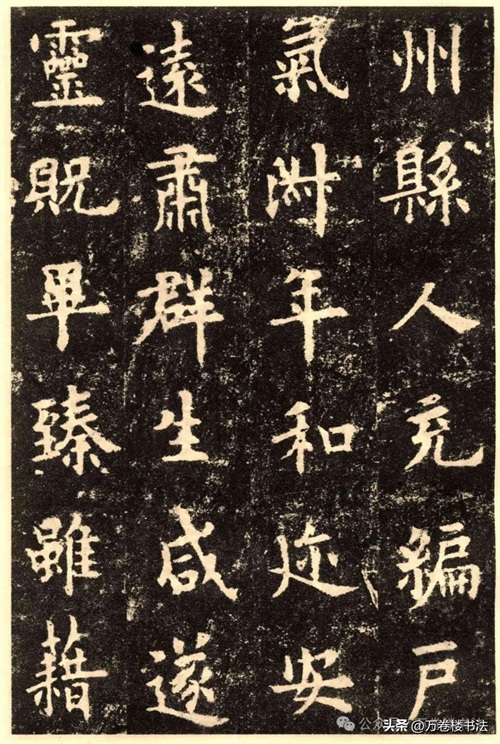 州縣人充編戶
氣淑年和迩安
遠肅群生咸遂
靈貺畢臻雖藉
头条 @万卷楼书法